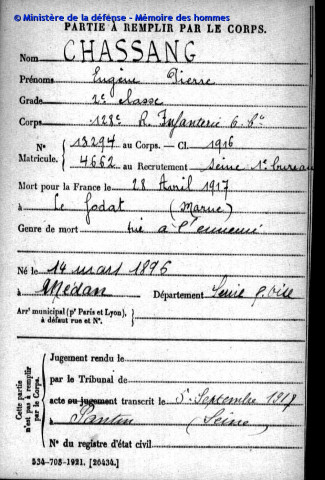 © Ministère de la défense - Mémoire des hommes
PARTIE À REMPLIR PAR LE CORPS.
Nom CHASSANG
Prénoms Eugène Pierre
Grade 2e classe
Corps 128e R. Infanterie 6. Cie
N° 13294 au Corps. — Cl. 1916
Matricule. 4662 au Recrutement Seine 1er bureau
Mort pour la France le 28 Avril 1917
à Le Godat (Marne)
Genre de mort tué à l'ennemi
Né le 14 mars 1896
à Médan Département Seine & Oise
Arrt municipal (pr Paris et Lyon),
à défaut rue et N°.
Cette partie n'est pas à remplir par le Corps.
Jugement rendu le
par le Tribunal de
acte ou jugement transcrit le 5 Septembre 1917
à Pantin (Seine)
N° du registre d'état civil
534-708-1921. [26434.]